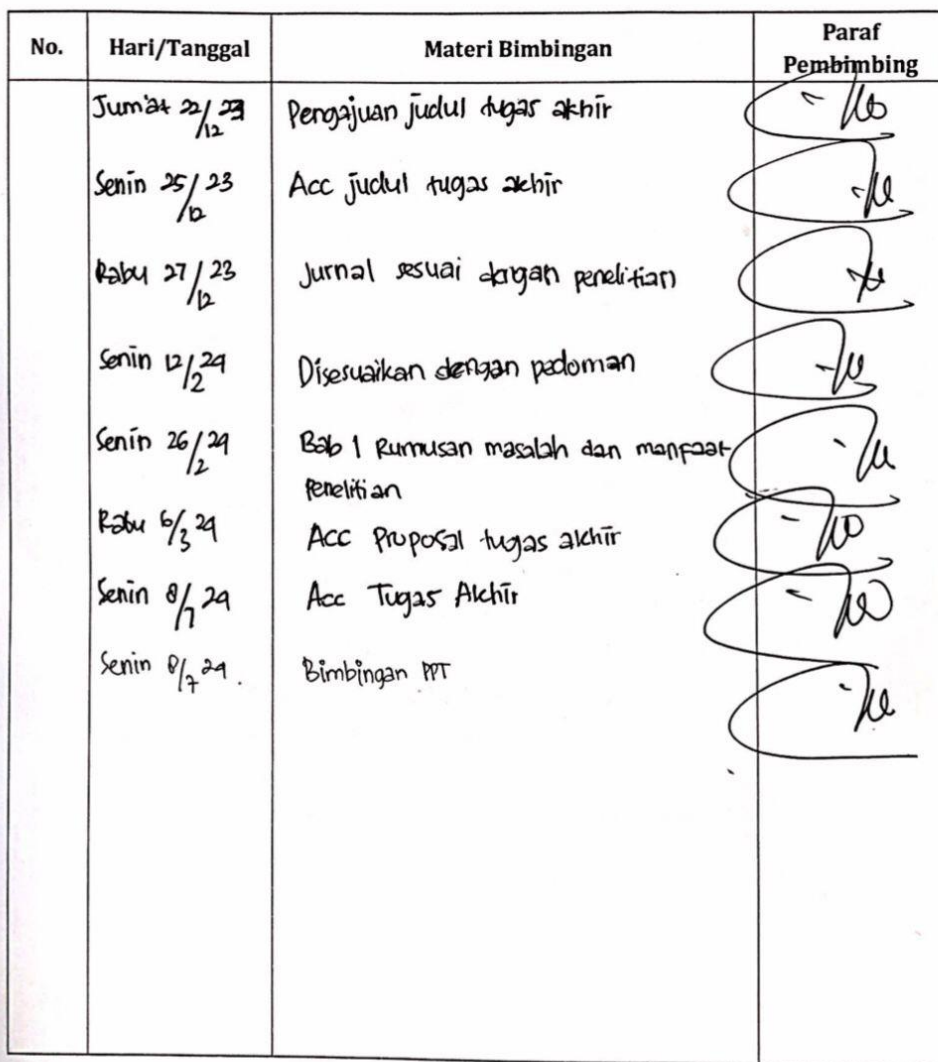 No. Hari/Tanggal Materi Bimbingan Paraf Pembimbing
Jum'at 22/12 23 Pengajuan judul tugas akhir
Senin 25/12 23 Acc judul tugas akhir
Rabu 27/12 23 Jurnal sesuai dengan penelitian
Senin 12/2 24 Disesuaikan dengan pedoman
Senin 26/2 24 Bab 1 Rumusan masalah dan manfaat
Penelitian
Rabu 6/3 24 Acc Proposal tugas akhir
Senin 8/7 24 Acc Tugas Akhir
Senin 8/7 24. Bimbingan PPT